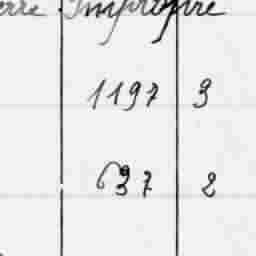 erre Impropire
1197 3
637 2